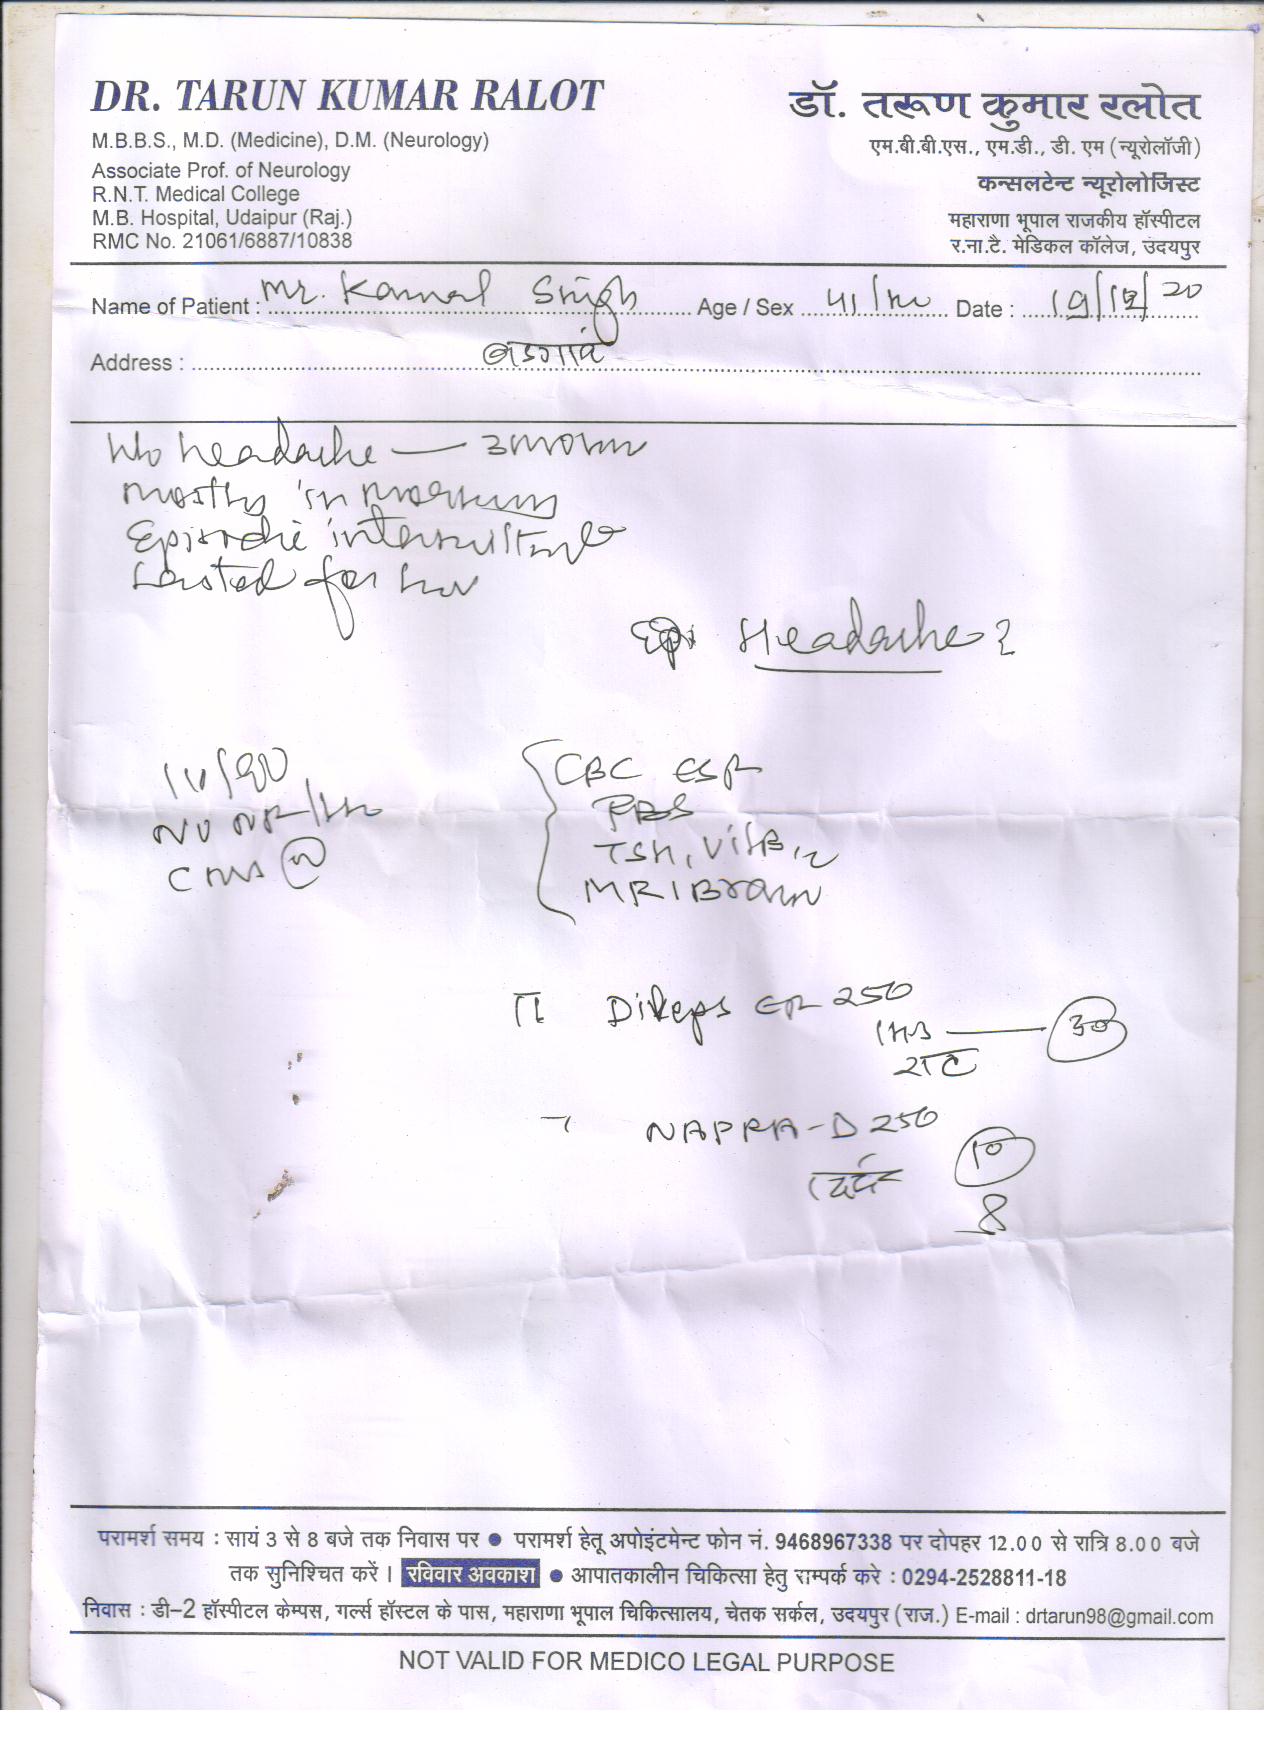 DR. TARUN KUMAR RALOT
M.B.B.S., M.D. (Medicine), D.M. (Neurology)
Associate Prof. of Neurology
R.N.T. Medical College
M.B. Hospital, Udaipur (Raj.)
RMC No. 21061/6887/10838
डॉ. तरूण कुमार रलोत
एम.बी.बी.एस., एम.डी., डी. एम (न्यूरोलॉजी)
कन्सलटेन्ट न्यूरोलोजिस्ट
महाराणा भूपाल राजकीय हॉस्पीटल
र.ना.टै. मेडिकल कॉलेज, उदयपुर
Name of Patient : Mr. Kamal Singh Age / Sex 41/m Date : 19/12/20
Address : बडगांव
H/o headache — 3 month
mostly in morning
Episodic intermittent
Lasted for hrs
Headache ?
CBC ESR
PBS
TSH, Vit B12
MRI Brain
ER 250
1 HS — 30
रात
NAPRA-D 250
10
दर्द
8
परामर्श समय : सायं 3 से 8 बजे तक निवास पर ● परामर्श हेतू अपोइंटमेन्ट फोन नं. 9468967338 पर दोपहर 12.00 से रात्रि 8.00 बजे
तक सुनिश्चित करें । रविवार अवकाश ● आपातकालीन चिकित्सा हेतु राम्पर्क करे : 0294-2528811-18
निवास : डी-2 हॉस्पीटल केम्पस, गर्ल्स हॉस्टल के पास, महाराणा भूपाल चिकित्सालय, चेतक सर्कल, उदयपुर (राज.) E-mail : drtarun98@gmail.com
NOT VALID FOR MEDICO LEGAL PURPOSE